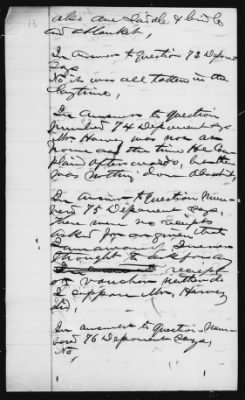 also one Saddle & bridle
and Blanket,
In Answer to Question 73 Deponent
Says
No it was all taken in the
daytime,
In Answer to Question
Number 74 Deponent Says
Mrs Harvey was from
home at the time He Com
plaid afterwards, but there
was nothing done about it,
In Answer to Question Num
berd 75 Deponent Says,
there were no receipts
asked for or given that
I am aware of I never
thought to ask for any
receipt
or voucher neither do
I suppose Mrs, Harvey
did,
In answer to Question Num
berd 76 Deponent Says,
No,